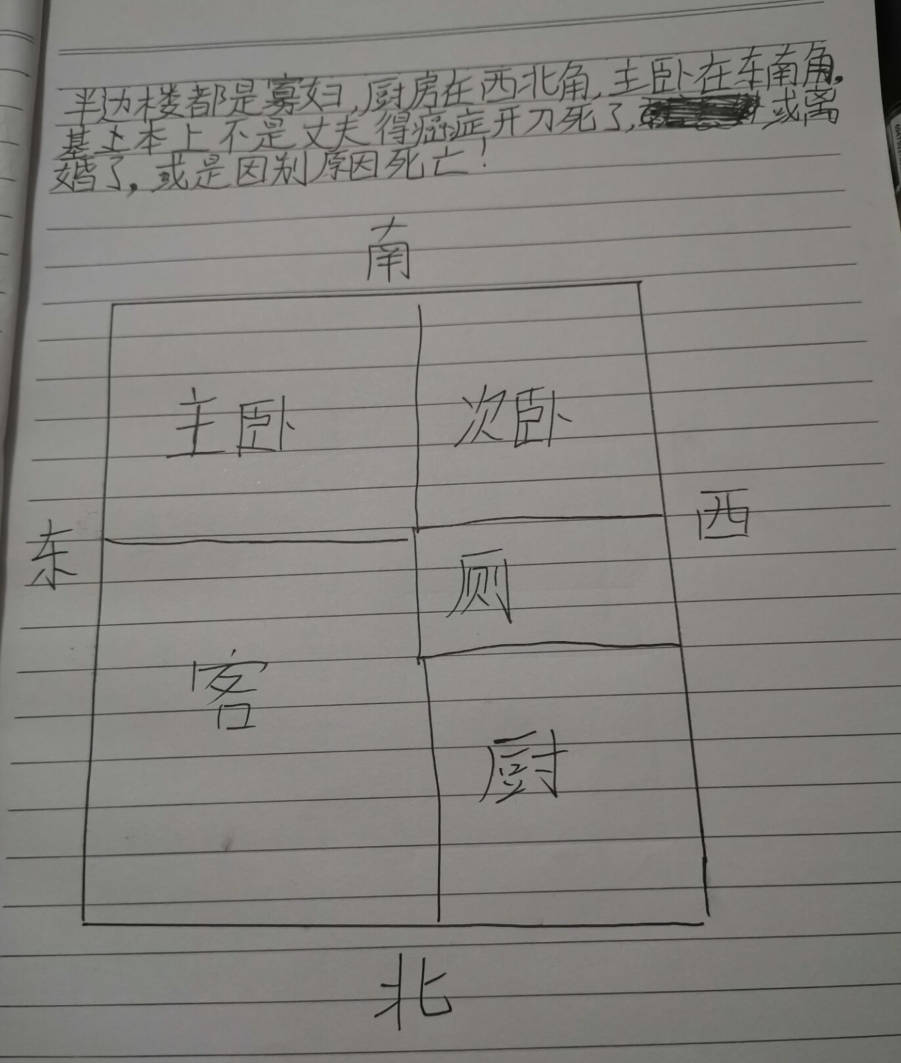 半边楼都是寡妇,厨房在西北角,主卧在东南角,
基本上不是丈夫得癌症开刀死了,或离
婚了,或是因别原因死亡!
南
主卧
次卧
东
西
厕
客
厨
北